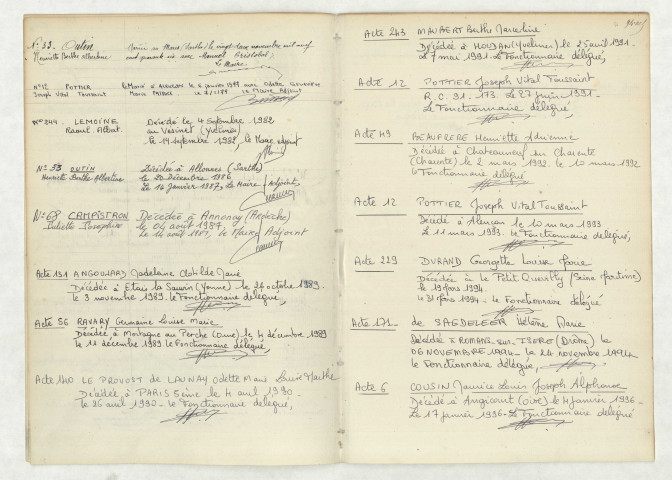 N° 33. Outin
Henriette Berthe Albertine.
Mariée au Mans (Sarthe) le vingt-deux novembre mil neuf
cent avec
Le Maire
N°12 POTTIER
Joseph Vital Toussaint
Marié à Alençon le 6 janvier 1989 avec Odette
Marie le Maire Adjoint
N° 244 LEMOINE
Raoul Albert.
Décédé le 4 Septembre 1982
au Vésinet (Yvelines)
le 14 septembre 1982, le Maire adjoint
N° 33 OUTIN
Henriette Berthe Albertine
Décédée à Allonnes (Sarthe)
le 20 Décembre 1986
Le 14 Janvier 1987, Le Maire Adjoint,
N° 68 CAMPISTRON
Juliette Josephine
Décédée à Annonay (Ardèche)
le 04 août 1987,
le 14 août 1987, le Maire Adjoint
Acte 131 ANGOULLARD Madelaine Clotilde Marie
Décédée à Etais la Sauvin (Yonne) le 24 octobre 1989.
le 3 novembre 1989. le Fonctionnaire délégué,
Acte 56 RAVARY Germaine Louise Marie
Décédée à Mortagne au Perche (Orne) le 4 décembre 1989
le 11 décembre 1989 le Fonctionnaire délégué,
Acte 240 LE PROVOST de LAUNAY Odette Marie Laure Marthe
Décédée à PARIS 5ème le 4 avril 1990.
le 26 avril 1990 - le Fonctionnaire délégué,
Acte 243 MAUBERT Berthe Marceline
Décédée à HOUDAN (Yvelines) le 25 avril 1991.
le 7 mai 1991. Le Fonctionnaire délégué,
Acte 12 POTTIER Joseph Vital Toussaint
R.C. 91. 173 Le 27 juin 1991.
Le Fonctionnaire délégué,
Acte 49 BEAUFRERE Henriette
Décédée à Chateauneuf sur Charente
(Charente) le 2 mars 1992. le 10 mars 1992
le Fonctionnaire délégué
Acte 12 POTTIER Joseph Vital Toussaint
Décédé à Alençon le 10 mars 1993
le 11 mars 1993. le Fonctionnaire délégué,
Acte 229 DURAND Georgette Louise Marie
Décédée à le Petit Quevilly (Seine Maritime)
le 19 1994
le 31 1994 - le Fonctionnaire délégué
Acte 171 de SAEDELEER Hélène Marie
Décédée à ROMANS-sur-ISERE (Drôme) le
06 NOVEMBRE 1994 - le 24 novembre 1994
le Fonctionnaire délégué,
Acte 6 COUSIN Maurice Louis Joseph Alphonse
Décédé à Angicourt (Oise) le 4 janvier 1936 -
Le 17 janvier 1936 - Le Fonctionnaire délégué